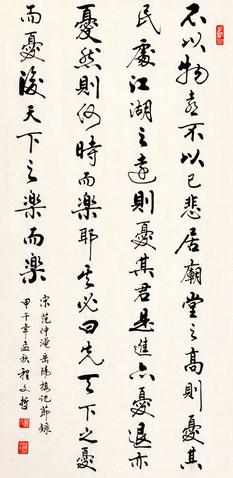 不以物喜不以己悲居廟堂之高則憂其
民處江湖之遠則憂其君是進亦憂退亦
憂然則何時而樂耶其必曰先天下之憂
而憂後天下之樂而樂
宋范仲淹岳陽樓記節錄
甲午年孟秋程文哲